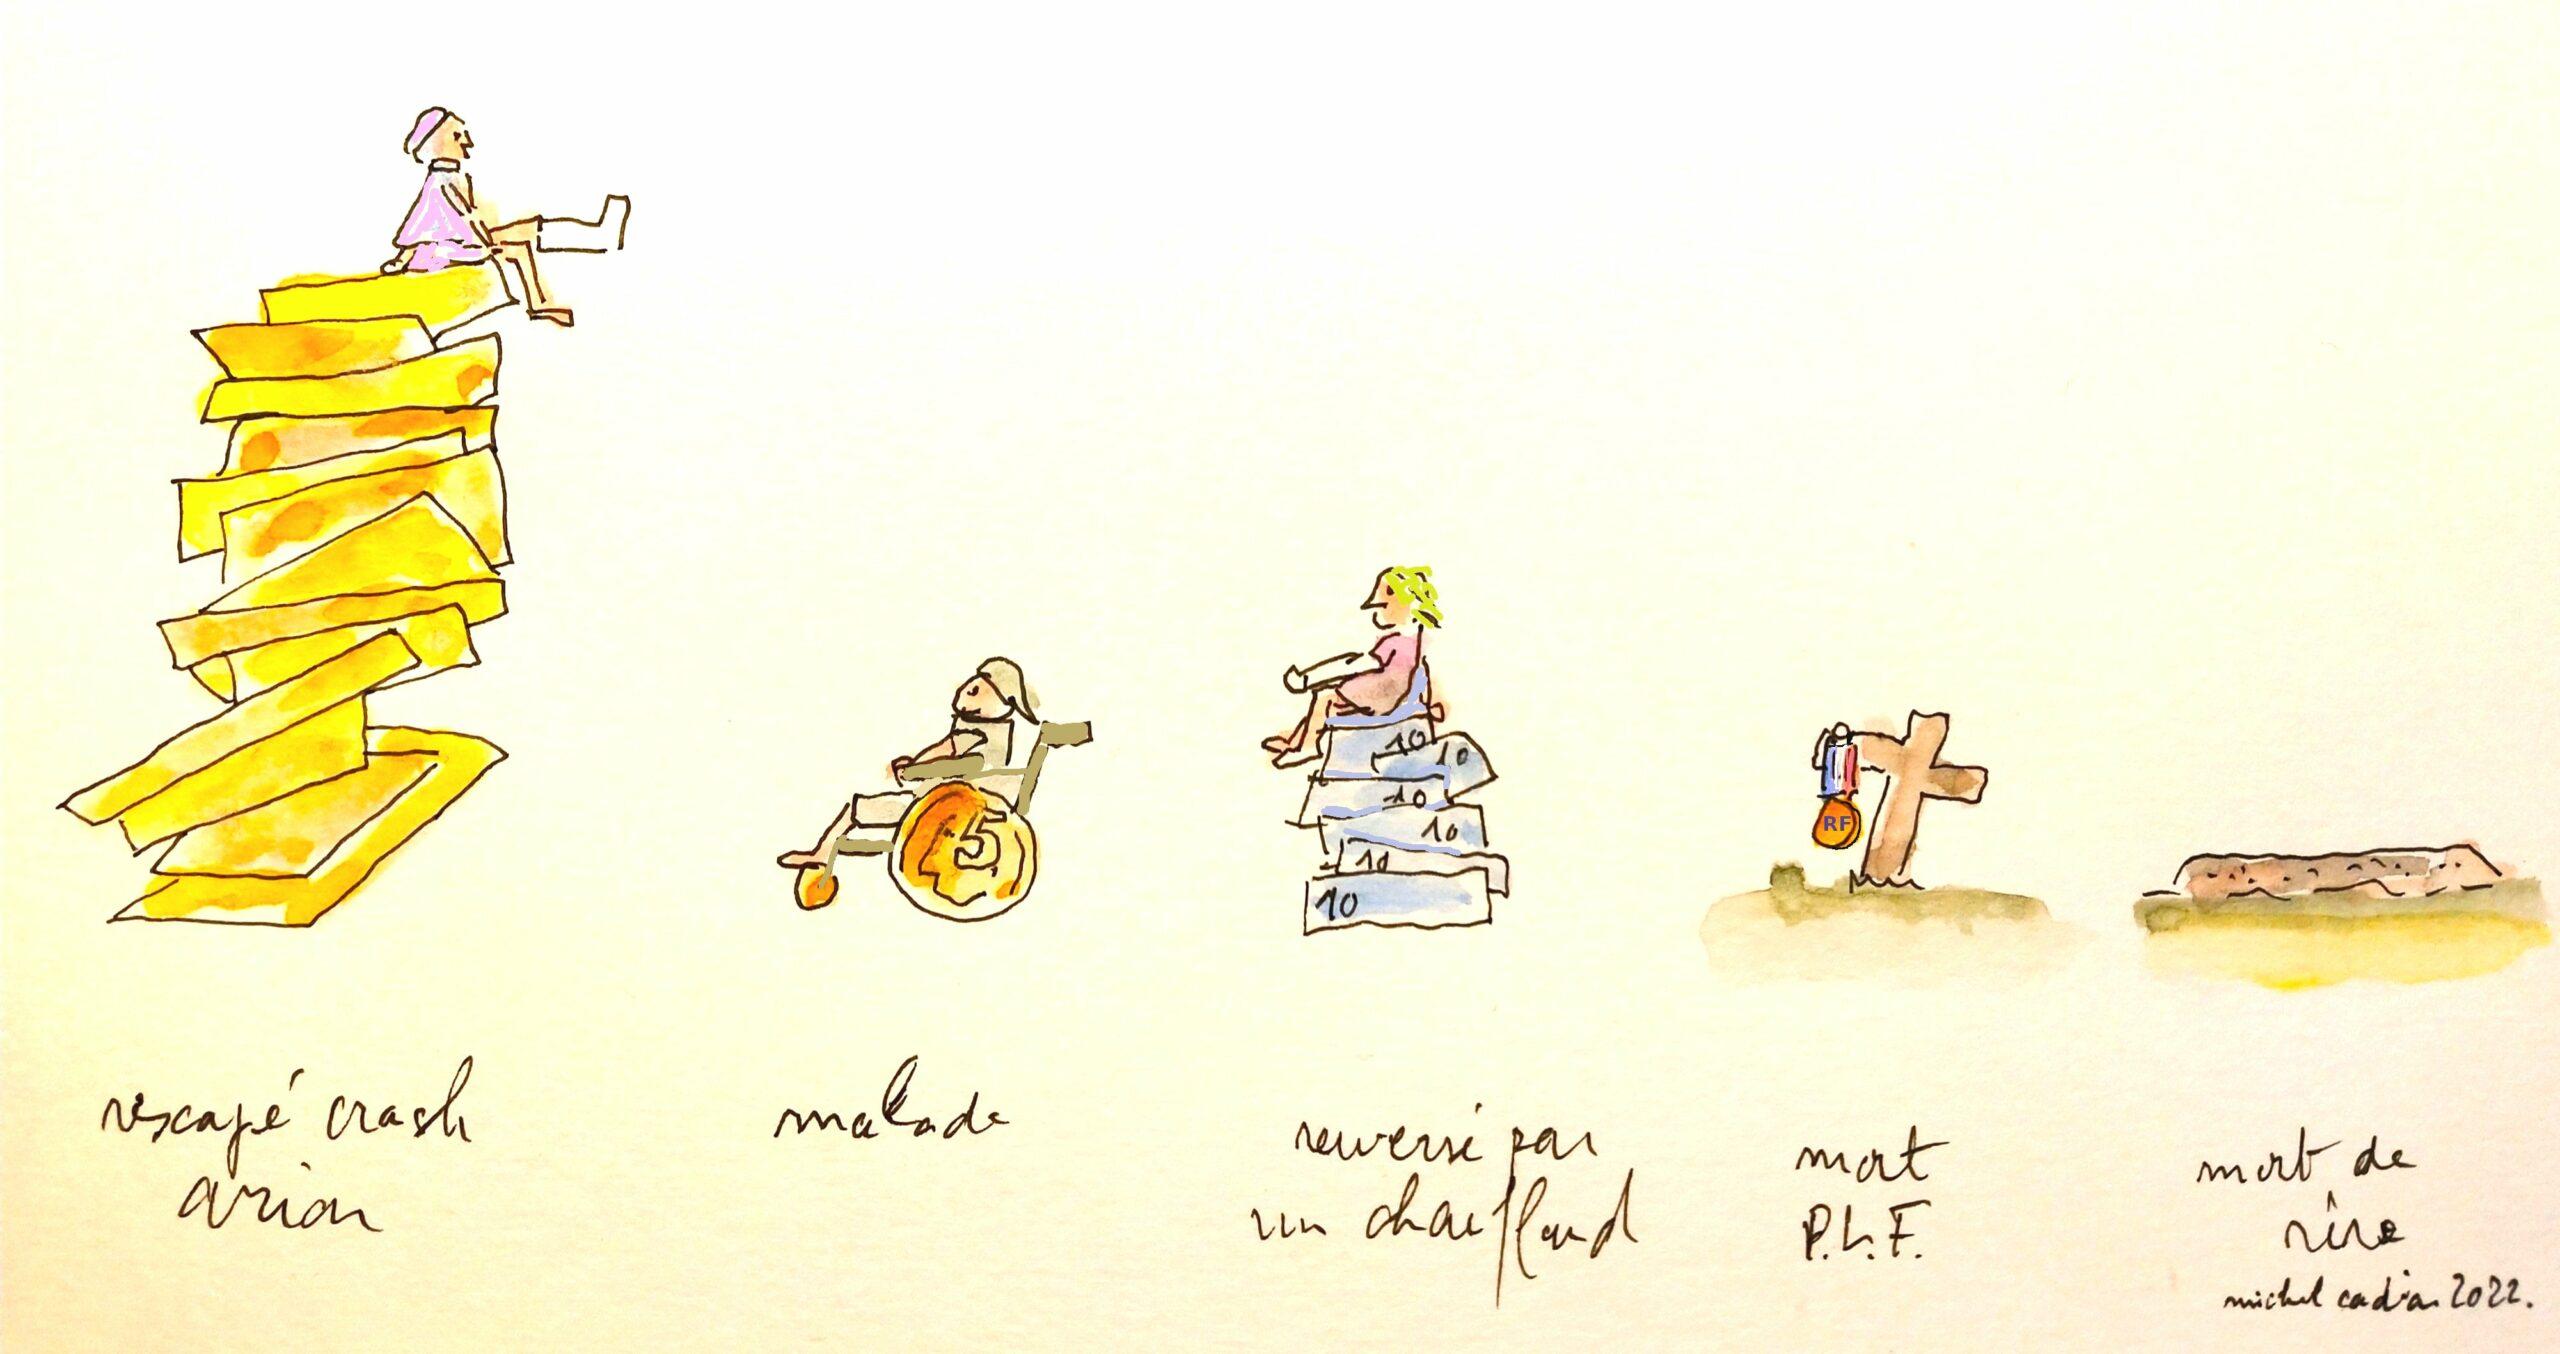 5
10
10
10
10
10
10
RF
rescapé crash
avion
malade
renversé par
un chauffard
mort
P.L.F.
mort de
rire
michel cadiou 2022.